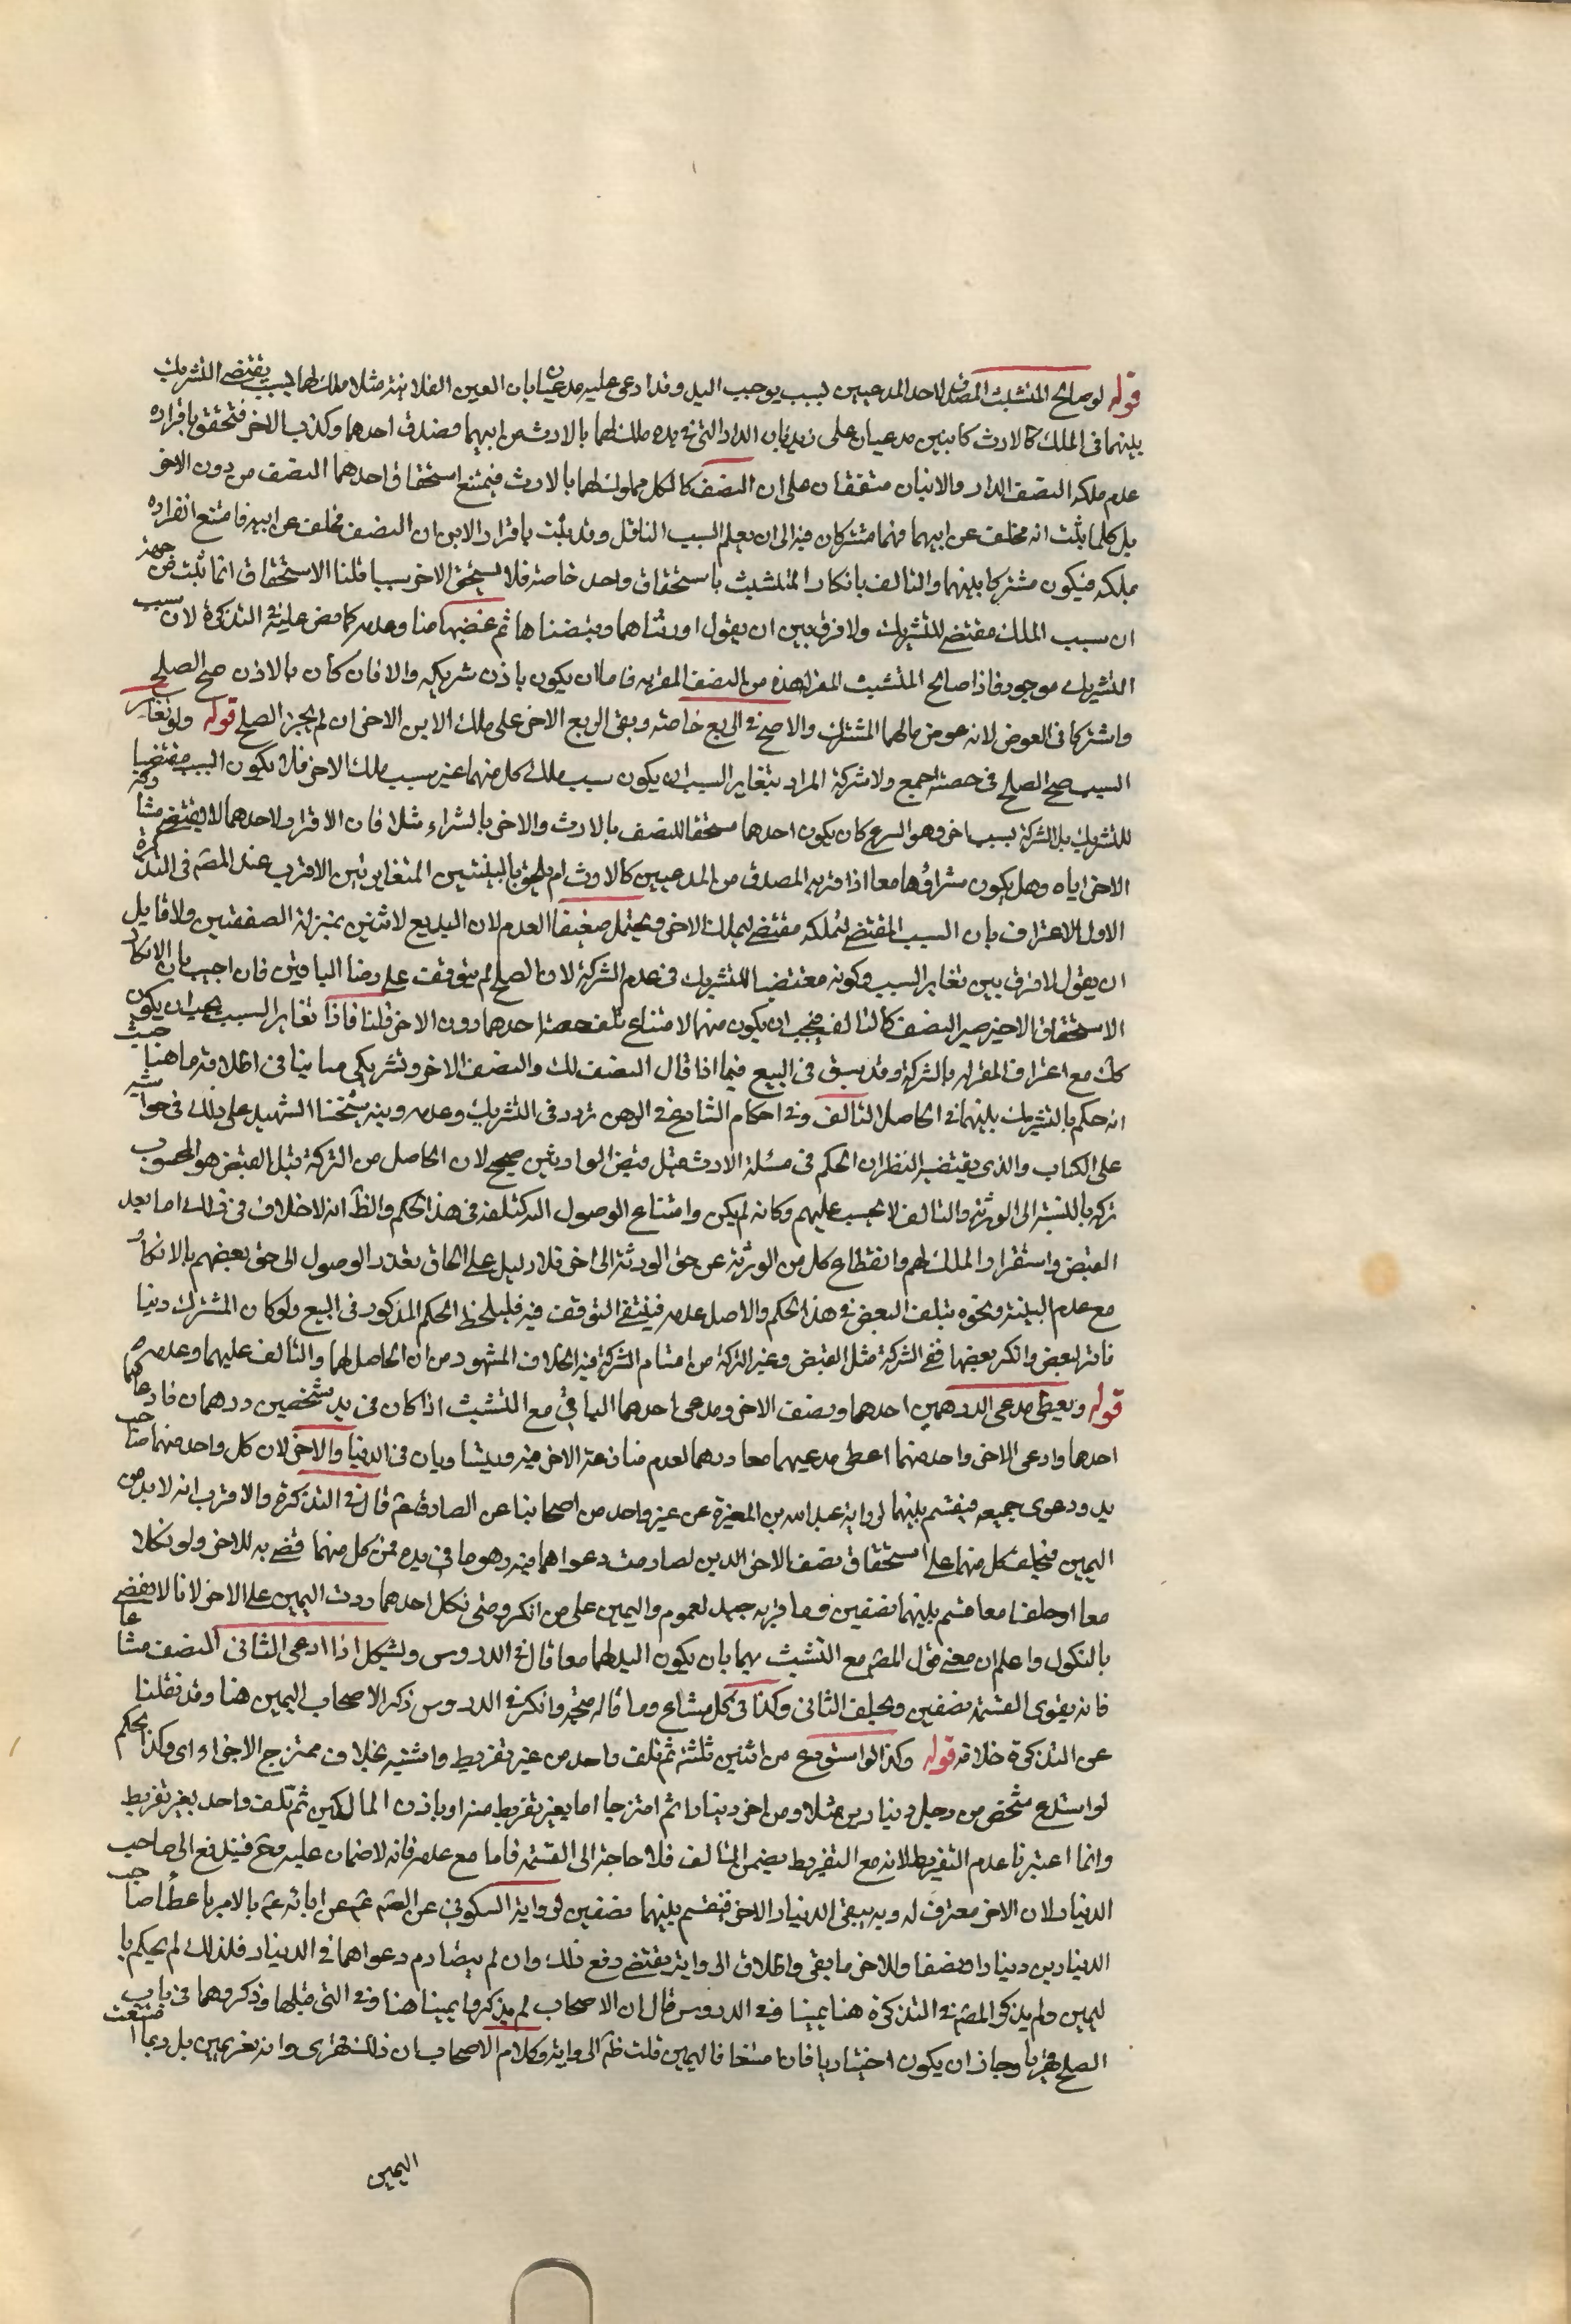 قوله لو صالح المتشبث المصدق لاحد المدعيين لسبب يوجب اليد وقد ادعى عليه مدعيان بان العين الفلانية مثلا ملك لهما لسبب يقتضى التشريك
بينهما فى الملك كالارث كابنين مدعيان على زيد بان الدار التى فى يده ملك لهما بالارث من ابيهما فصدق احدهما وكذب الاخر فتحقق باقراره
عدم ملكه النصف الدار والابنان متفقان على ان النصف كالكل مملوك لهما بالارث فيمتنع استحقاق احدهما النصف من دون الاخر
بل كلما يثبت انه مخلف عن ابيهما فهما مشتركان فيه الى ان يعلم السبب الناقل وقد ثبت باقرار الابن ان النصف مخلف عن ابيه فامتنع انفراده
بملكه فيكون مشتركا بينهما والتالف بانكار المتشبث باستحقاق واحد خاصة فلا يستحق الاخر سببا قلنا الاستحقاق انما ثبت من جهة
ان سبب الملك مقتضى للتشريك ولا فرق بين ان يقول اورثناهما وقبضناها ثم غصبها منا وعدمه كما نص عليه فى التذكرة لان سبب
التشريك موجود فاذا صالح المتشبث المقر له هذه من النصف المقر به فاما ان يكون باذن شريكه والا فان كان بالاذن صح الصلح
واشتركا فى العوض لانه عوض مالهما المشترك والا صح فى الربع خاصة وبقى الربع الاخر على ملك الابن الاخر ان لم يجز الصلح قوله ولو تغاير
السبب صح الصلح فى حصته اجمع ولا شركة المراد بتغاير السبب ان يكون سبب ملك كل منهما غير سبب ملك الاخر فلا يكون السبب مقتضيا
للتشريك بل الشركة بسبب اخر وهو الشرع كان يكون احدهما مستحقا للنصف بالارث والاخر بالشراء مثلا فان الاقرار لاحدهما لا يقتضى مشاركة
الاخر اياه وهل يكون شراؤهما معا اذا اقر به المصدق من المدعيين كالارث ام يلحق بالبينتين المتغايرتين الاقرب عند المصنف فى التذكرة
الاول للاعتراف بان السبب المقتضى لتملكه مقتضى لتملك الاخر ويحتمل ضعيفا العدم لان البيع لاثنين بمنزلة الصفقتين ولا قايل
ان يقول لا فرق بين تغاير السبب وكونه مقتضيا للتشريك فى عدم الشركة لان الصلح لم يتوقف على رضا الباقين فان اجيب بان الانكار
الاستحقاق الاخر صير النصف كالتالف فيجب ان يكون منهما لامتناع تلف حصة احدهما دون الاخر قلنا فاذا تغاير السبب يجب ان يكون
كك مع اعتراف المقر له بالشركة وقد سبق فى البيع فيما اذا قال النصف لك والنصف الاخر وشريكى ما ينافى اطلاقه ما هنا حيث
انه حكم بالتشريك بينهما فى الحاصل التالف وفى احكام التنازع فى الرهن تردد فى التشريك وعدمه ونبه شيخنا الشهيد على ذلك فى حواشيه
على الكتاب والذى يقتضيه النظر ان الحكم فى مسئلة الارث قبل قبض الوارثين صحيح لان الحاصل من التركة قبل القبض هو المحسوب
تركة بالنسبة الى الورثة والتالف لا يحسب عليهم وكانه لم يكن وامتناع الوصول اليه كتلفه فى هذا الحكم والظ انه لا خلاف فى ذلك اما بعد
القبض واستقرار الملك لهم وانقطاع كل من الورثة عن حق الورثة الى اخر فلا دليل على الحاق تعذر الوصول الى حق بعضهم بالانكار
مع عدم البينة ونحوه بتلف البعض فى هذا الحكم والاصل عدمه فينتفى التوقف فيه فليلحظ الحكم المذكور فى البيع ولو كان المشترك دينا
فاقر لبعض وانكر بعضها ففى الشركة مثل القبض وغير التركة من اقسام الشركة فيه الخلاف المشهور من ان الحاصل لهما والتالف عليهما وعدمه
قوله ويعطى مدعى الدرهمين احدهما ونصف الاخر ومدعى احدهما الباقى مع التشبث اذا كان فى يد شخصين درهمان فادعاهما
احدهما وادعى الاخر واحد منهما اعطى مدعيهما معا درهما لعدم منازعة الاخر فيه وتساويان فى الدنيا والاخر لان كل واحد منهما صاحب
يد ودعوى جميعه فيقسم بينهما لرواية عبد الله بن المغيرة عن غير واحد من اصحابنا عن الصادق ع قال فى التذكرة والاقرب انه لا بد من
اليمين فيحلف كل منهما على استحقاق نصف الاخر الذى تصادمت دعواهما فيه وهو ما فى يده فمن نكل منهما قضى به للاخر ولو نكلا
معا او حلفا معا قسم بينهما نصفين وما قربه جيد لعموم واليمين على من انكر ومتى نكل احدهما ردت اليمين على الاخر لانا لا نقضى
بالنكول واعلم ان معنى قول المصنف مع التشبث بهما بان يكون اليد لهما معا قال فى الدروس ويشكل اذا ادعى الثانى النصف مشاعا
فانه يقوى القسمة نصفين ويحلف الثانى وكذا فى كل مشاع وما قاله متجه وانكر فى الدروس ذكر الاصحاب اليمين هنا وقد نقلنا
عن التذكرة خلافه قوله وكذا لو استودع من اثنين ثلثة ثم تلف واحد من غير تفريط واشتبه بخلاف ممتزج الاجزاء اى وكذا الحكم
لو استودع شخص من رجل دينارين مثلا ومن اخر دينارا ثم امتزجا اما بغير تفريط منه او باذن المالكين ثم تلف واحد بغير تفريط
وانما اعتبرنا عدم التفريط لانه مع التفريط يضمن التالف فلا حاجة الى القسمة فاما مع عدمه فانه لا ضمان عليه وح فيندفع الى صاحب
الدينار لان الاخر معترف له وبه يبقى الدينار الاخر فيقسم بينهما نصفين لرواية السكونى عن الصم ع عن ابائه ع بالامر باعطأ صاحب
الدينارين دينارا ونصفا وللاخر ما بقى واطلاق الرواية يقتضى دفع ذلك وان لم يتصادم دعواهما فى الدينار فلذلك لم يحكم با
ليمين ولم يذكر المصنف فى التذكرة هنا يمينا وفى الدروس قال ان الاصحاب لم يذكروا يمينا هنا وفى التى قبلها وذكروهما فى باب
الصلح فخرنا وجاز ان يكون اختياريا فان امتنعا فاليمين قلت ظه الرواية وكلام الاصحاب ان ذلك قهرى وانه بغير يمين بل ربما امتنعت
اليمين